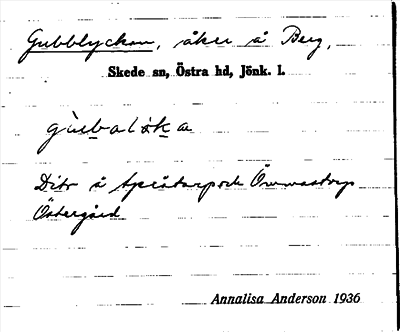 Gubblyckan, åker å Berg,
Skede sn, Östra hd, Jönk. l.
gùbalỳka
Dito å och Ömmastorp
Östergård
Annalisa Anderson 1936